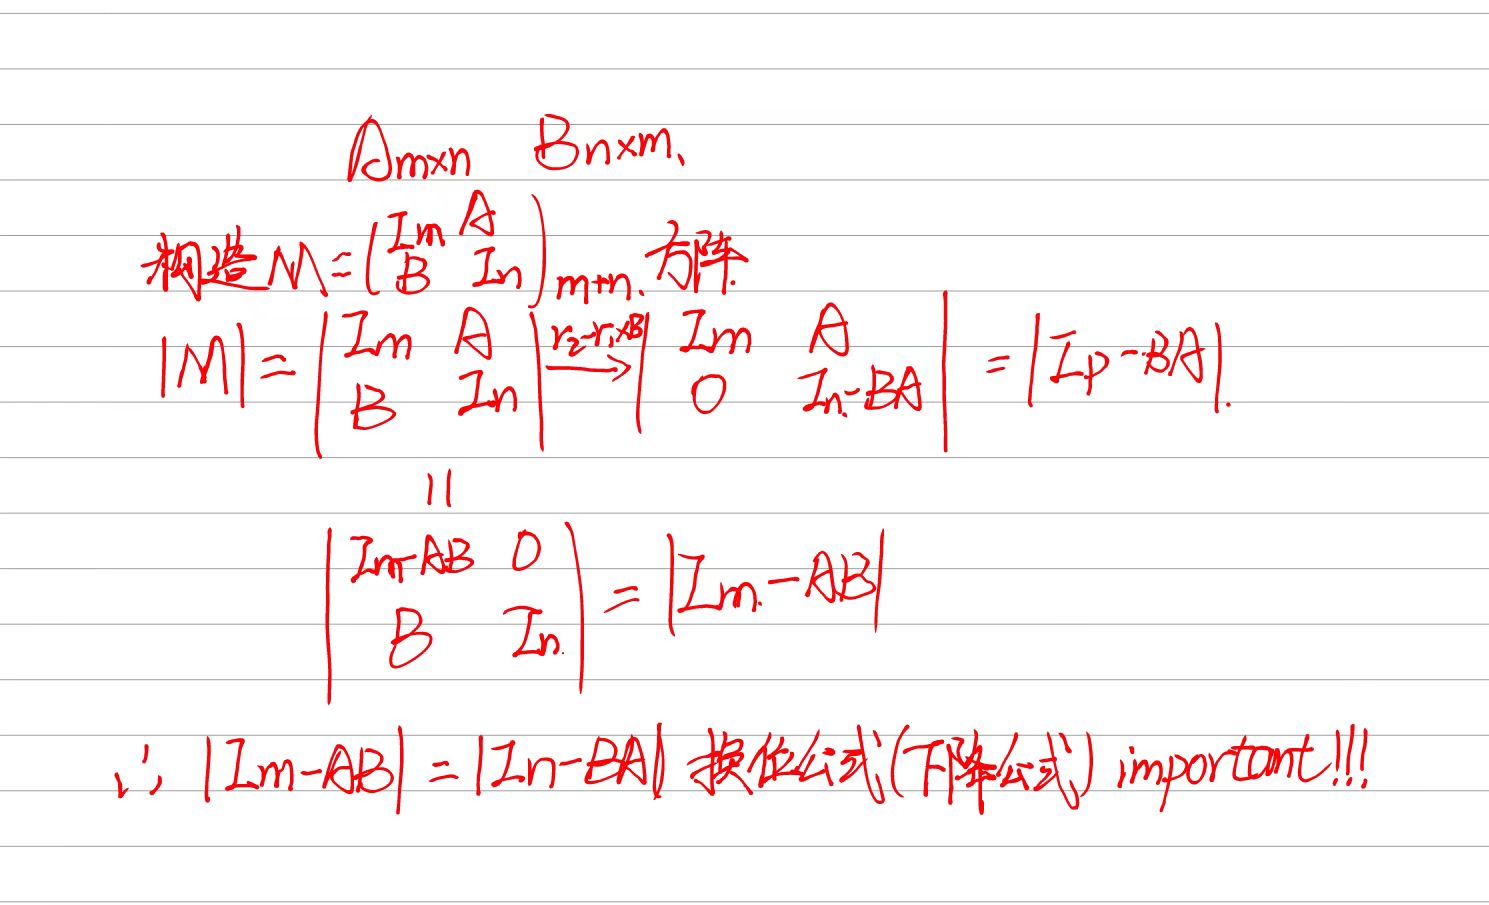 Am×n Bn×m、
构造 M = (Im A
B In)m+n. 方阵.
|M| = |Im A
B In| r₂-r₁×B → |Im A
0 In-BA| = |Ip-BA|.
||
|Im-AB 0
B In.| = |Im.-AB|
∴ |Im-AB| = |In-BA| 换位公式(下降公式) important!!!